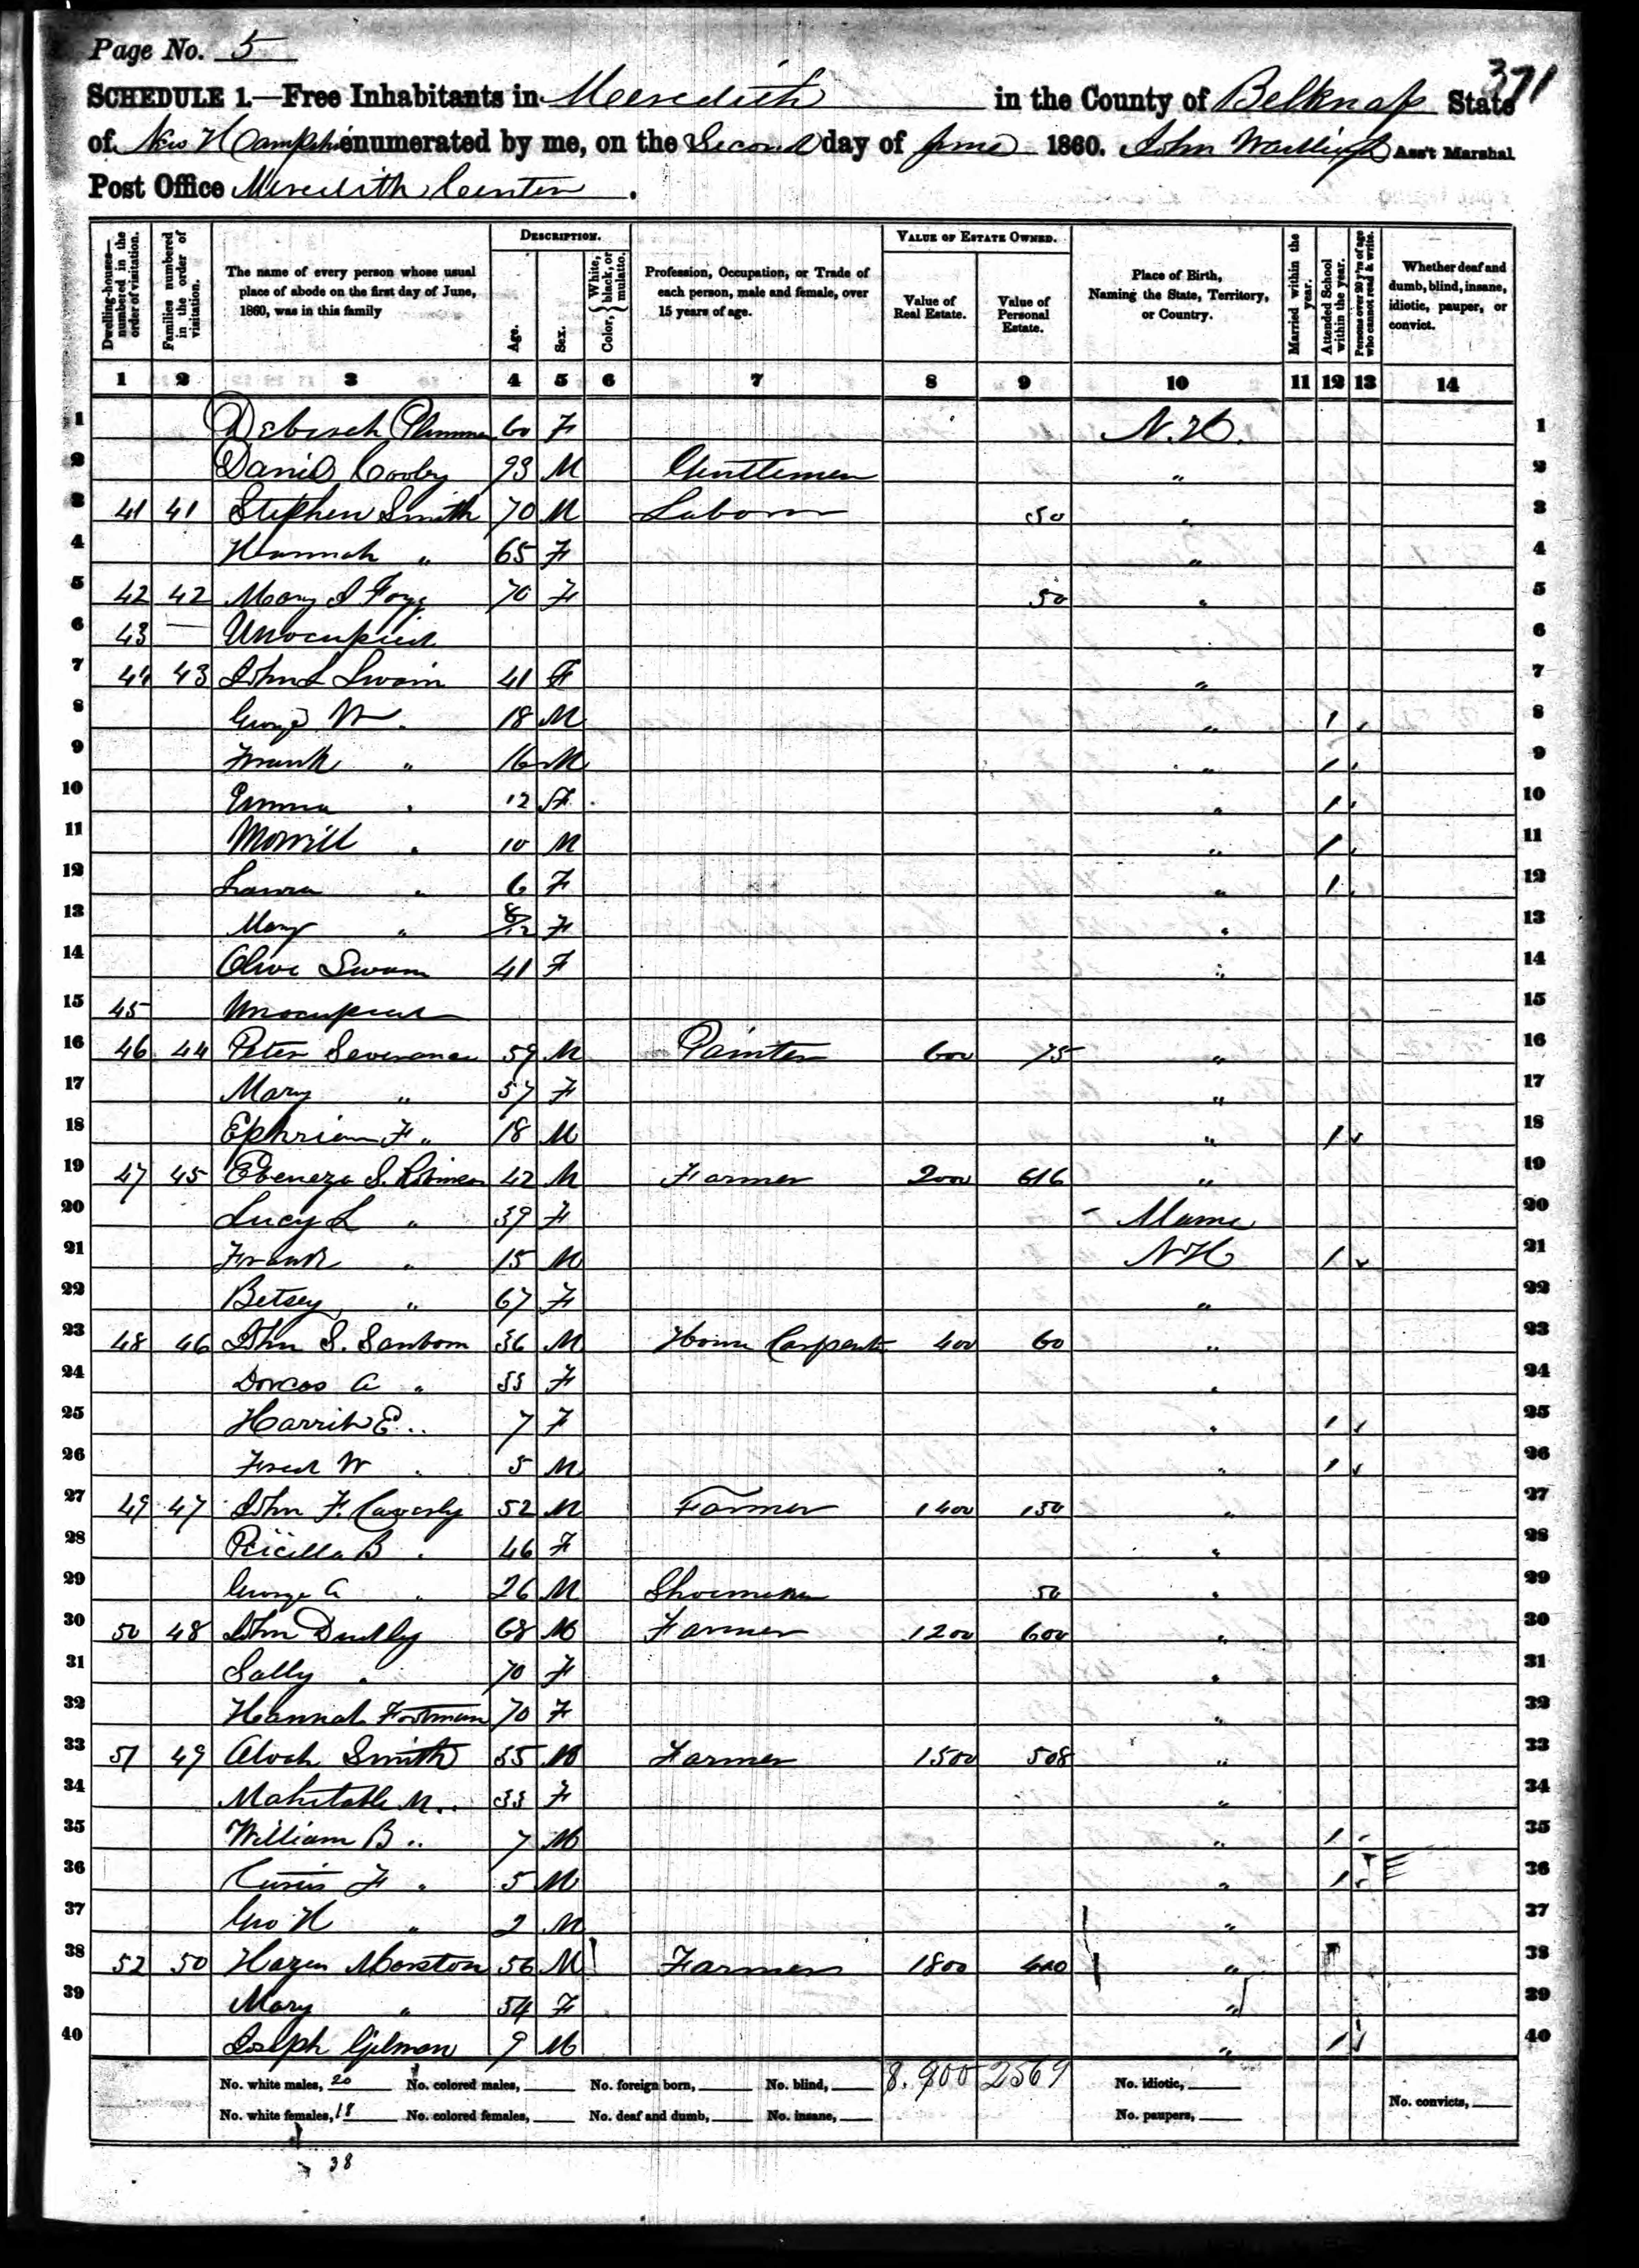 Page No. 5
371
SCHEDULE 1.—Free Inhabitants in Meredith in the County of Belknap State
of New Hampshire enumerated by me, on the Second day of June 1860. John Ass't Marshal
Post Office Meredith Center.
Dwelling-houses—numbered in the order of visitation. Families numbered in the order of visitation. The name of every person whose usual place of abode on the first day of June, 1860, was in this family DESCRIPTION. Age. Sex. Color, { White, black, or mulatto. Profession, Occupation, or Trade of each person, male and female, over 15 years of age. VALUE OF ESTATE OWNED. Value of Real Estate. Value of Personal Estate. Place of Birth, Naming the State, Territory, or Country. Married within the year. Attended School within the year. Persons over 20 y'rs of age who cannot read & write. Whether deaf and dumb, blind, insane, idiotic, pauper, or convict.
1 2 3 4 5 6 7 8 9 10 11 12 13 14
1 Deborah Plummer 60 F N.H. 1
2 Daniel 93 M Gentlemen " 2
3 41 41 Stephen Smith 70 M Laborer 50 " 3
4 Hannah " 65 F " 4
5 42 42 Mary S 70 F 50 " 5
6 43 — Unocupied 6
7 44 43 John L Swain 41 F " 7
8 George W " 18 M " 1 8
9 Frank " 16 M " 1 9
10 Emma " 12 F " 1 10
11 Morrill " 10 M " 1 11
12 Laura " 6 F " 1 12
13 Mary " 8/12 F " 13
14 Olive Swain 41 F " 14
15 45 Unocupied 15
16 46 44 Peter Severance 59 M Painter 600 75 " 16
17 Mary " 57 F " 17
18 Ephriam F " 18 M " 1 18
19 47 45 Ebenezer S. Robinson 42 M Farmer 2000 616 " 19
20 Lucy L " 39 F Maine 20
21 Frank " 15 M NH 1 21
22 Betsey " 67 F " 22
23 48 46 John S. Sanborn 36 M House Carpenter 400 60 " 23
24 Dorcas A " 33 F " 24
25 Harrit E " 7 F " 1 25
26 Fred W " 5 M " 1 26
27 49 47 John F. Caverly 52 M Farmer 1400 150 " 27
28 B " 46 F " 28
29 George A " 26 M Shoemaker 50 " 29
30 50 48 John Dudley 68 M Farmer 1200 600 " 30
31 Sally " 70 F " 31
32 Hannah 70 F " 32
33 51 49 Smith 35 M Farmer 1500 508 " 33
34 Mahitable M " 33 F " 34
35 William B " 7 M " 1 35
36 Curtis F " 5 M " 1 36
37 Geo H " 2 M " 37
38 52 50 Hazen Marston 56 M Farmer 1800 400 " 38
39 Mary " 54 F " 39
40 Joseph Gilman 9 M " 1 40
No. white males, 20 No. colored males, No. foreign born, No. blind, 8.900 2569 No. idiotic,
No. white females, 18 No. colored females, No. deaf and dumb, No. insane, No. paupers, No. convicts,
38